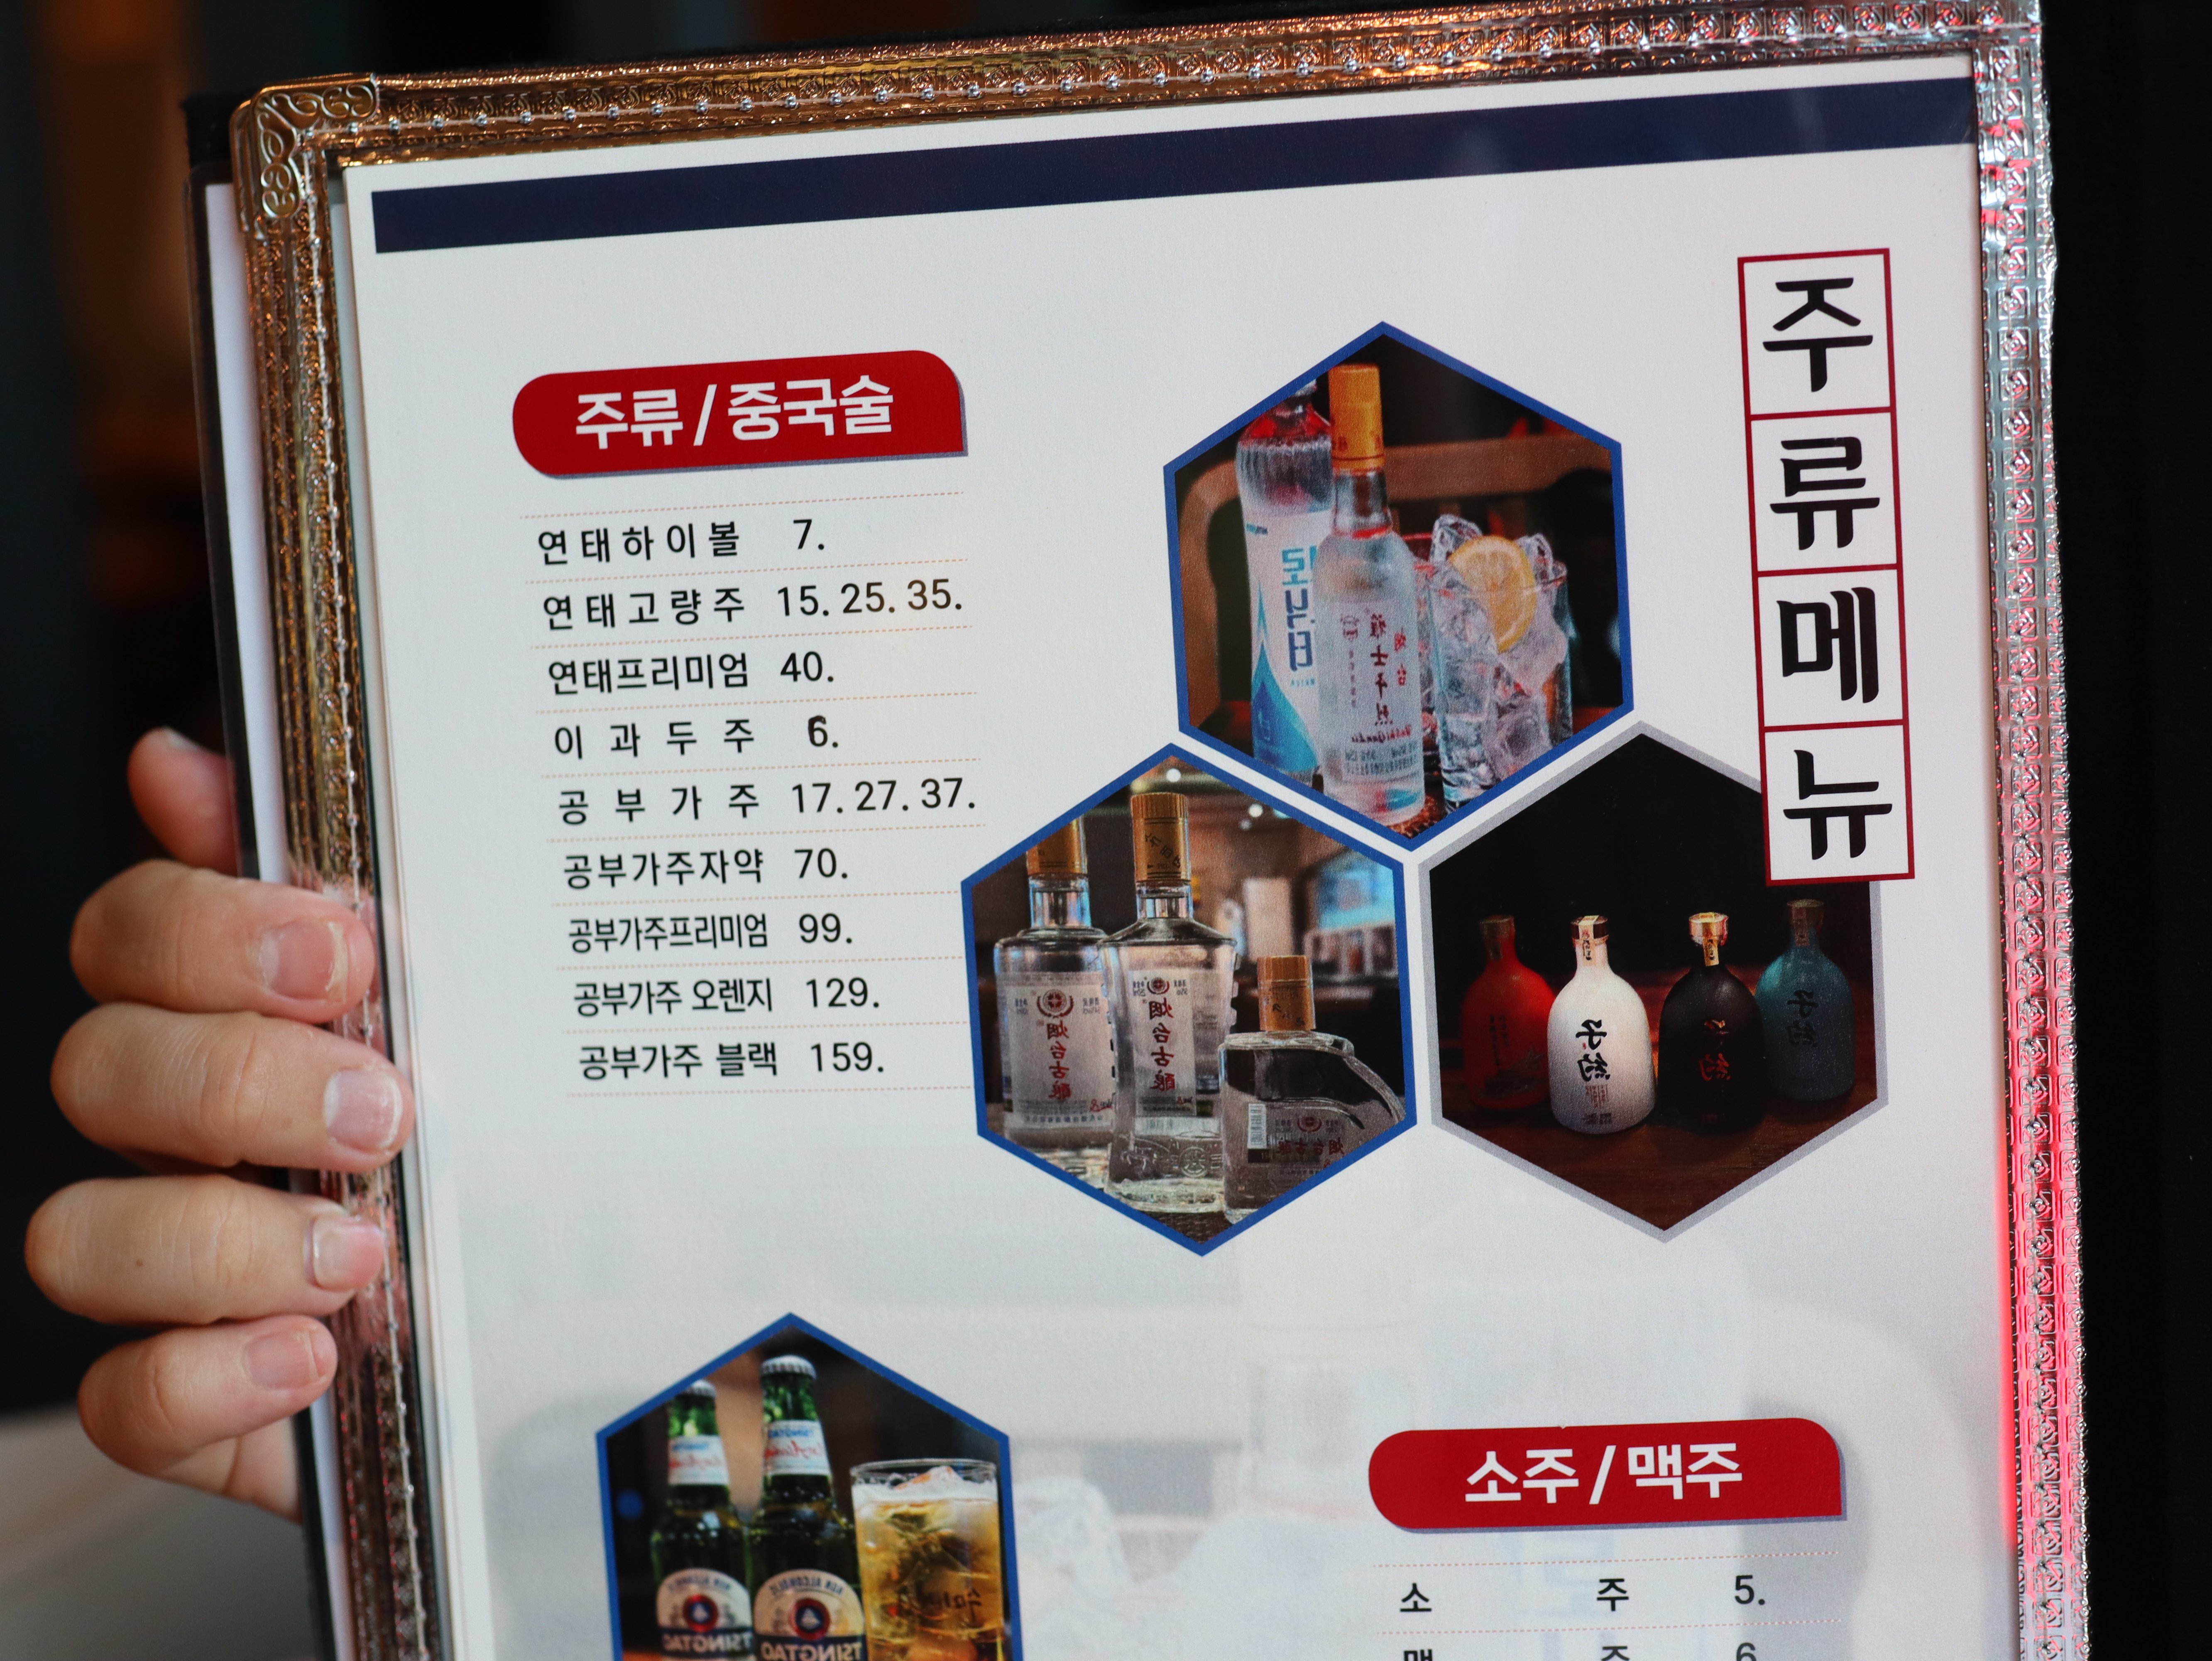 주류메뉴
주류 / 중국술
연태하이볼 7.
연태고량주 15. 25. 35.
연태프리미엄 40.
이과두주 6.
공부가주 17. 27. 37.
공부가주자약 70.
공부가주프리미엄 99.
공부가주 오렌지 129.
공부가주 블랙 159.
烟台古酿
烟台古酿
子約
TSINGTAO
TSINGTAO
소주 / 맥주
소주 5.
맥주 6